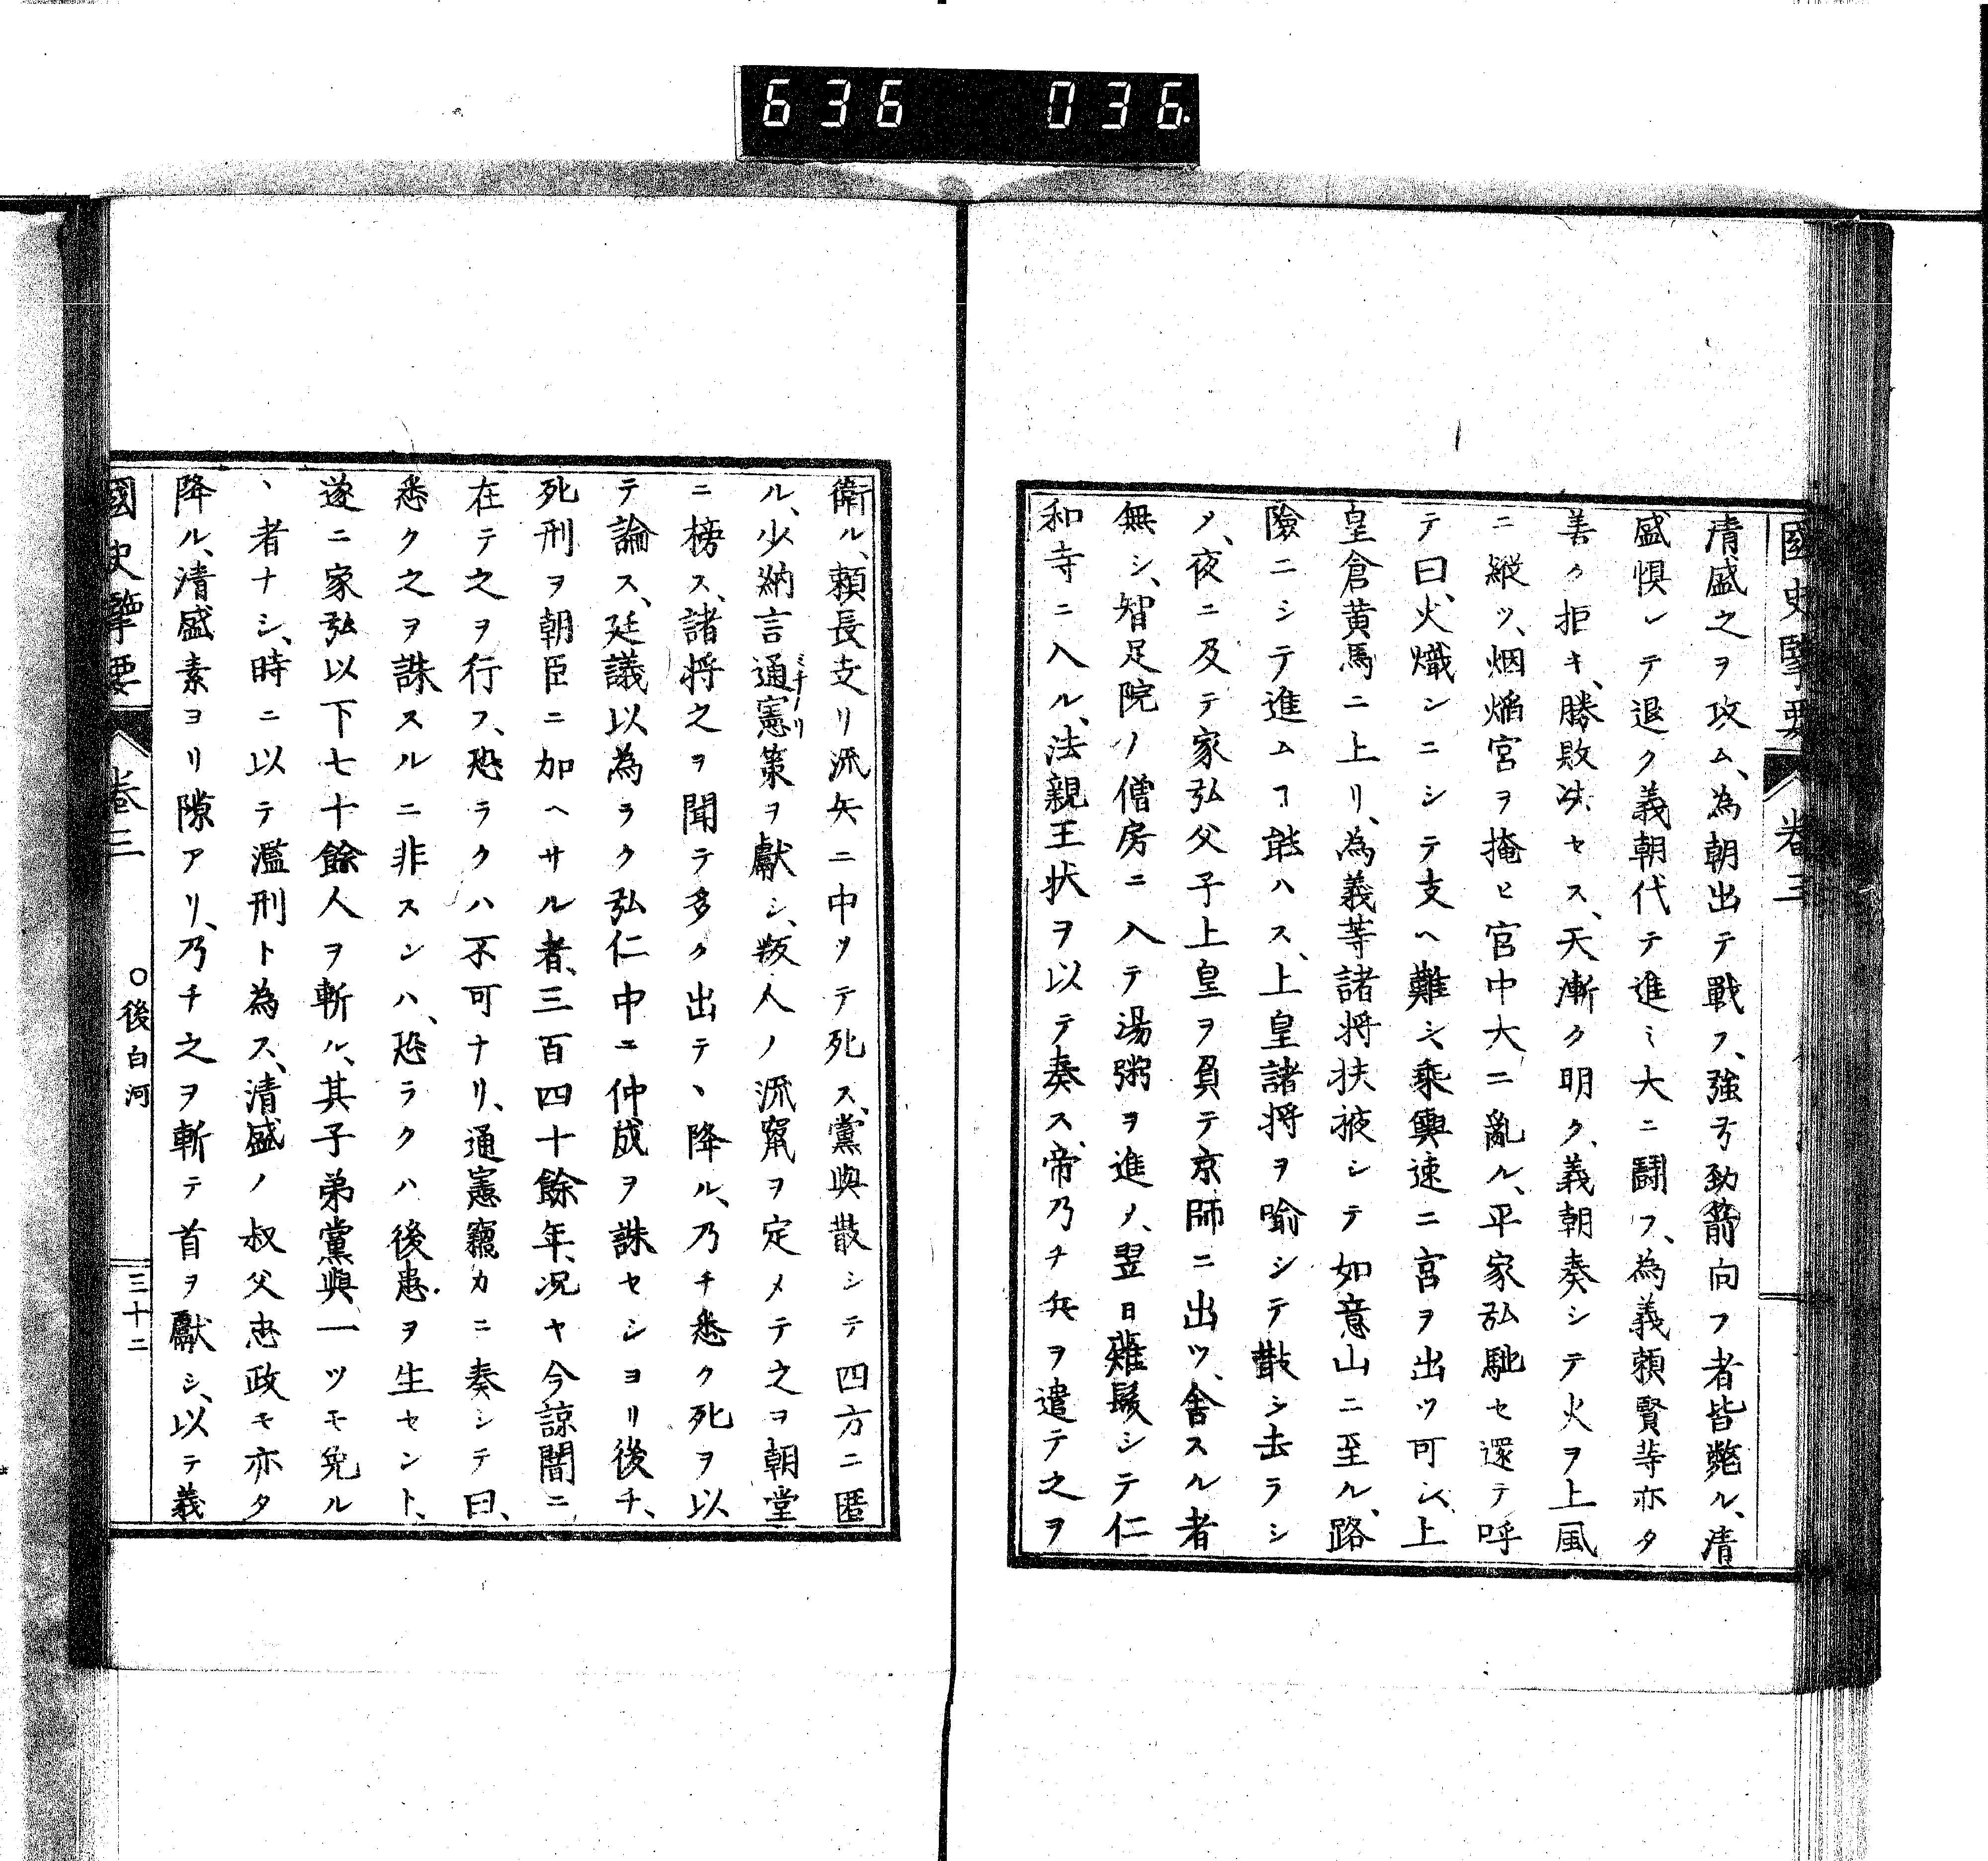 636 036
國史擥要 卷三
清盛之ヲ攻ム、為朝出テ戰フ、強弓勁箭向フ者皆斃ル、清
盛惧レテ退ク義朝代テ進ミ大ニ鬪フ、為義頼賢等亦タ
善ク拒キ、勝敗决セス、天漸ク明ク、義朝奏シテ火ヲ上風
ニ縱ツ、烟焔宮ヲ掩ヒ宮中大ニ亂ル、平家弘馳セ還テ呼
テ曰、火熾ンニシテ支ヘ難シ、乘輿速ニ宮ヲ出ツ可シ、上
皇倉黄馬ニ上リ、為義等諸将扶掖シテ如意山ニ至ル、路
險ニシテ進ムヿ能ハス、上皇諸将ヲ喻シテ散シ去ラシ
メ、夜ニ及テ家弘父子上皇ヲ負テ京師ニ出ツ、舎スル者
無シ、智足院ノ僧房ニ入テ湯粥ヲ進メ、翌日薙髮シテ仁
和寺ニ入ル、法親王状ヲ以テ奏ス、帝乃チ兵ヲ遣テ之ヲ
衛ル、頼長支リ流矢ニ中ツテ死ス、黨與散シテ四方ニ匿
ル、少納言通憲ミチノリ策ヲ獻シ、叛人ノ流竄ヲ定メテ之ヲ朝堂
ニ榜ス、諸将之ヲ聞テ多ク出テヽ降ル、乃チ悉ク死ヲ以
テ論ス、廷議以為ラク弘仁中ニ仲成ヲ誅セシヨリ後チ、
死刑ヲ朝臣ニ加ヘサル者、三百四十餘年、况ヤ今諒闇ニ
在テ之ヲ行フ、恐ラクハ不可ナリ、通憲竊カニ奏シテ曰、
悉ク之ヲ誅スルニ非スンハ、恐ラクハ後患ヲ生セント、
遂ニ家弘以下七十餘人ヲ斬ル、其子弟黨與一ツモ免ル
ヽ者ナシ、時ニ以テ濫刑ト為ス、清盛ノ叔父忠政モ亦タ
降ル、清盛素ヨリ隙アリ、乃チ之ヲ斬テ首ヲ獻シ、以テ義
國史擥要 卷三 ○後白河 三十二